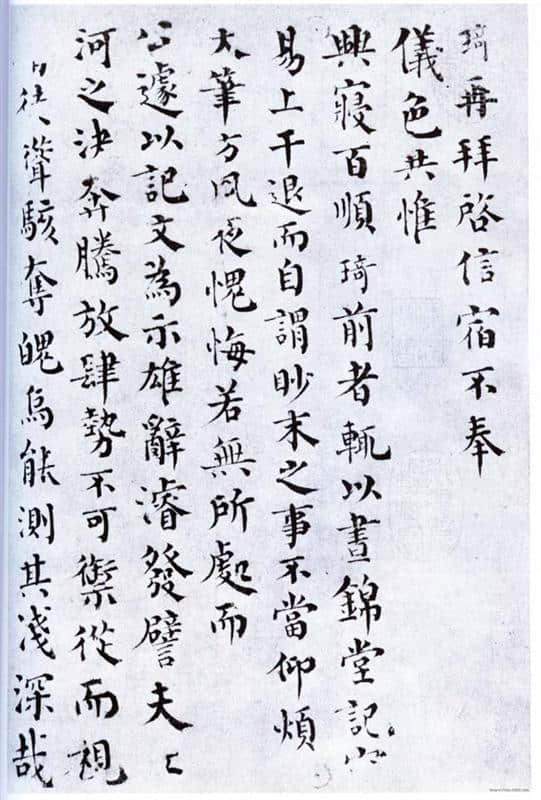 琦再拜啓信宿不奉
儀色共惟
興寢百順琦前者輒以晝錦堂記容
易上干退而自謂眇末之事不當仰煩
大筆方夙夜愧悔若無所處而
公遽以記文為示雄辭濬發譬夫江
河之決奔騰放肆勢不可禦從而視
徒聳駭奪魄烏能測其淺深哉